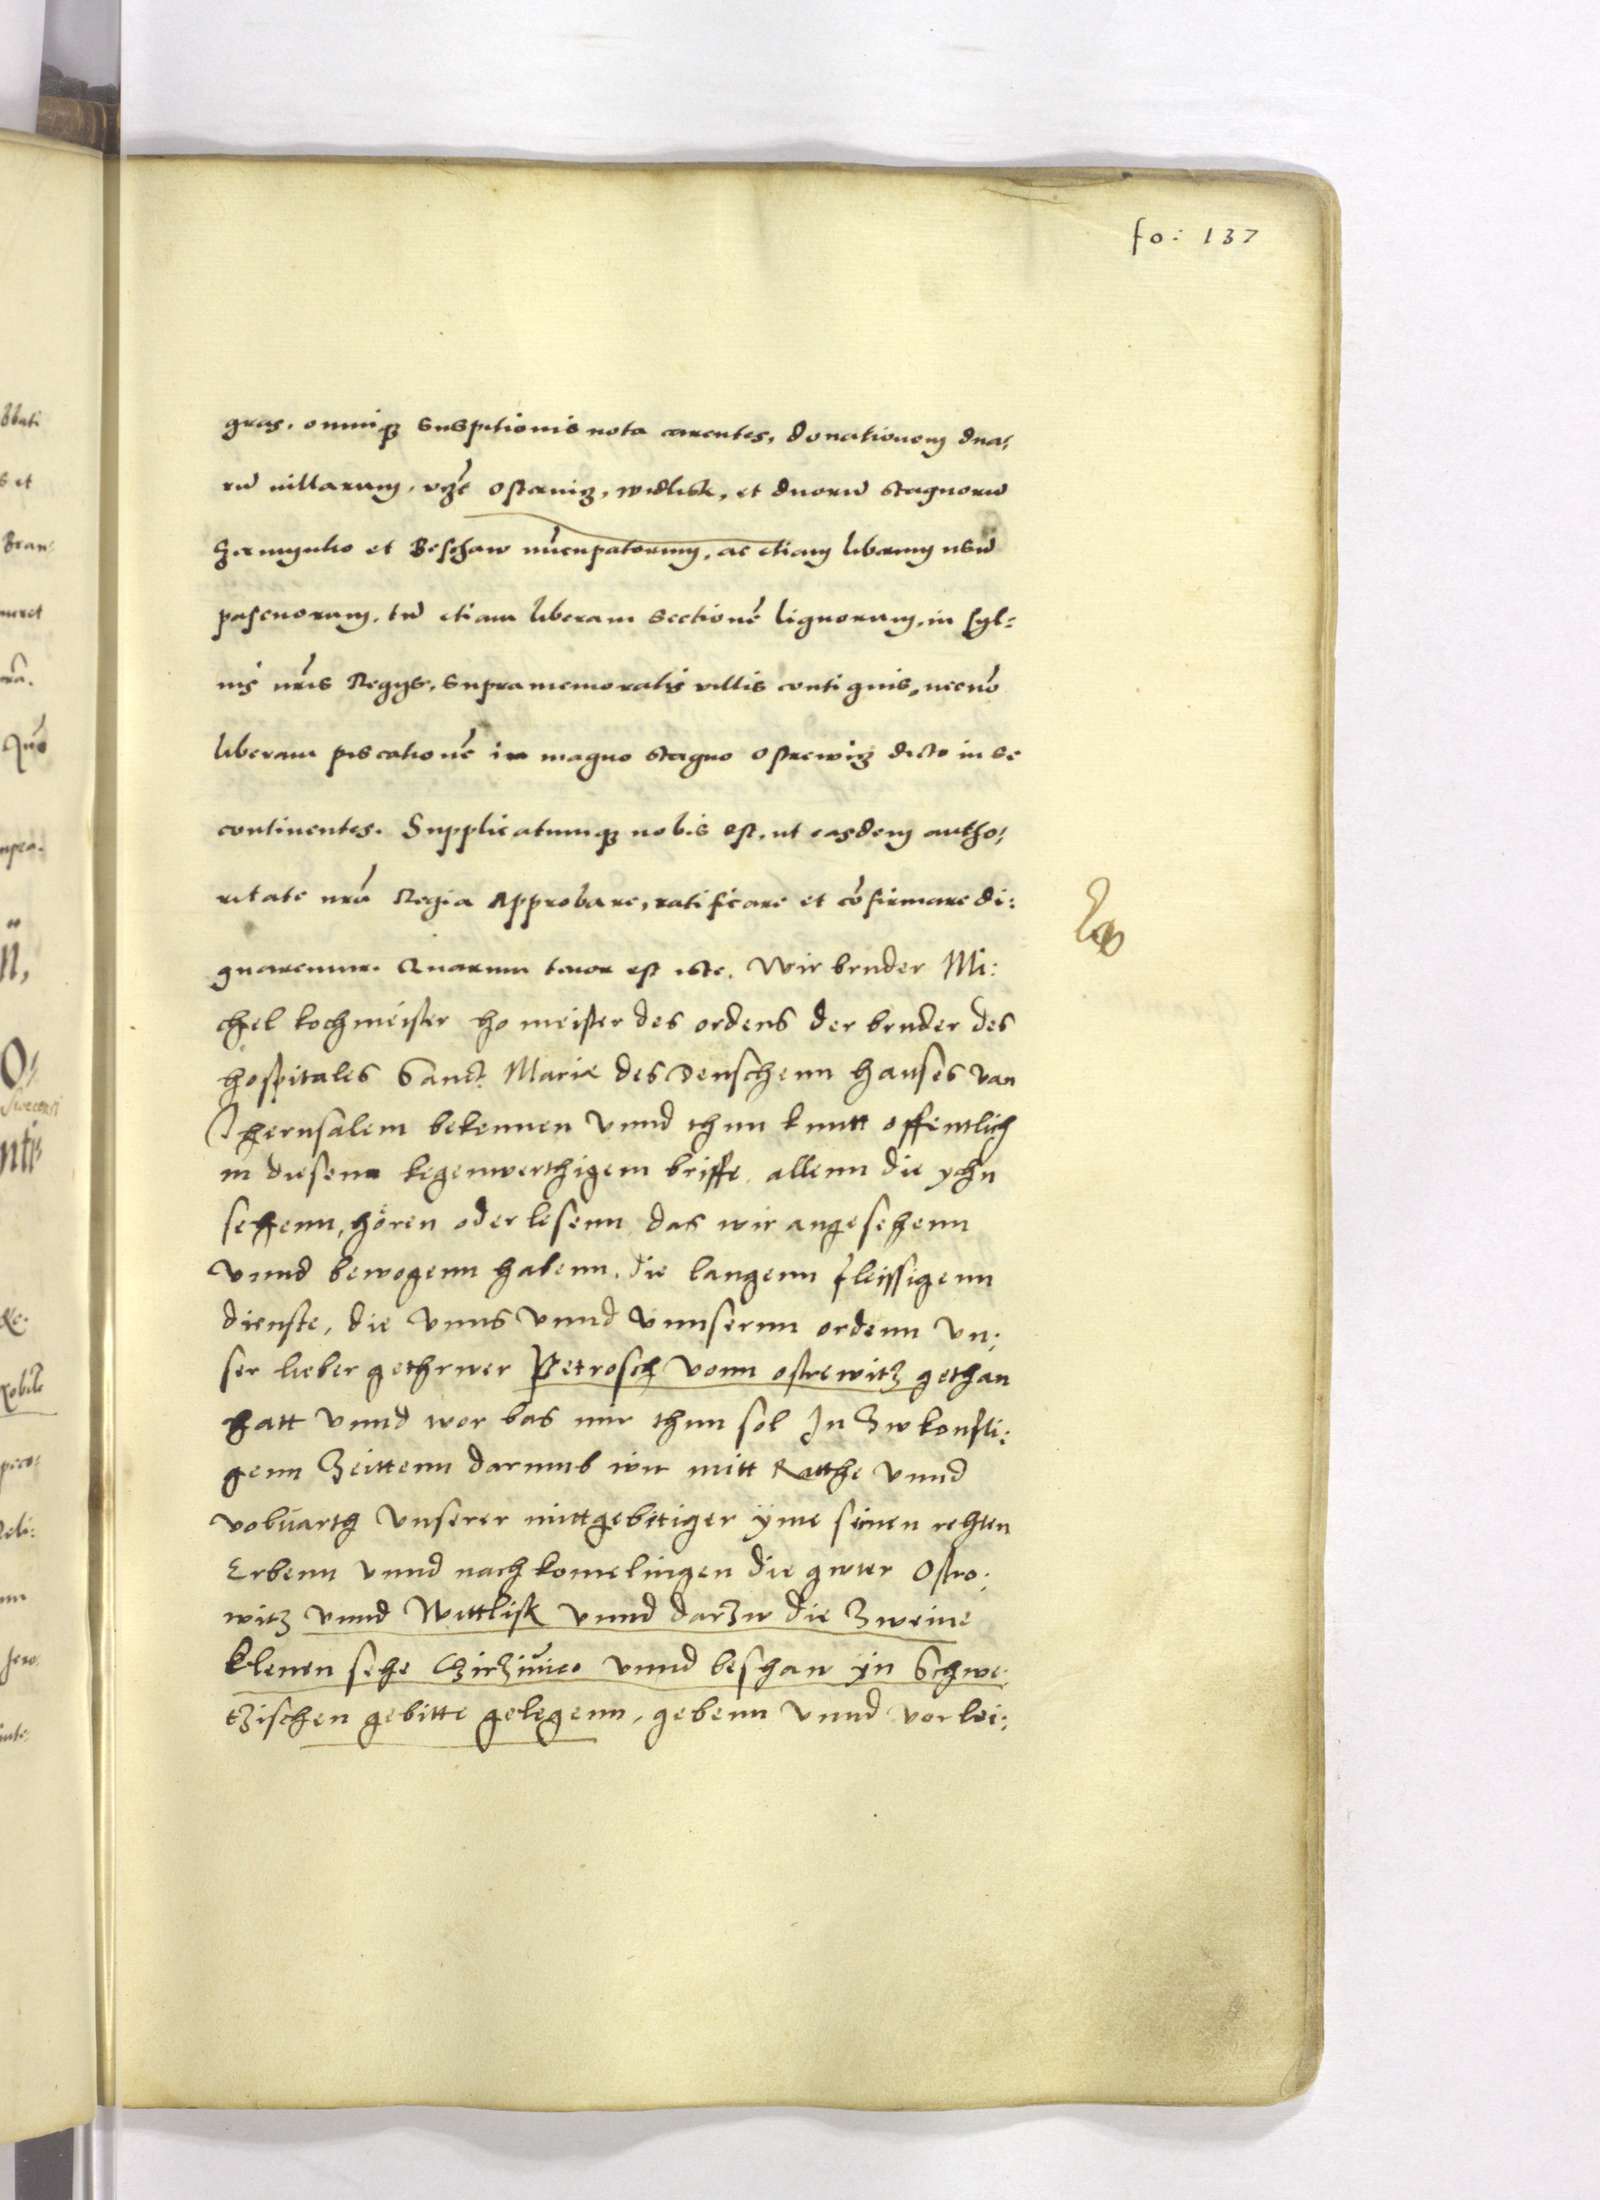 fo: 137
gras, omniq₃ suspitionis nota carentes, donationem dua,
rū villarum, vꝫt Ostrowiz, widlisk, et duorū stagnorū
et Beschaw nūcupatorum, ac etiam liberum usū
pascuorum, tū etiam liberam sectionē lignorum, in syl:
uis nr̄is Regijs, supramemoratis villis contiguis, necnō
liberam piscationē in magno stagno Ostrewiz dicto in se
continentes. Supplicatumq₃ nobis est, ut easdem autho,
ritate nr̄a Regia Approbare, ratificare et cōfirmare di:
gnaremur. Quarum tenor est iste. Wir bruder Mi:
chel kochmeister ho meister des ordens der bruder des
hospitales Sanct Marie des deuschenn hauses van
Jherusalem bekennen vnnd thun kuntt offentlich
in diesem kegenwerthigem briffe allenn die ychn
sehenn, hören oder lesenn das wir angesehenn
vnnd bewogenn habenn, die langenn fleissigenn
dienste, die vnns vnnd vnnsernn ordenn vn:
ser lieber gethrwer Petrosch vonn ostrewitz gethan
hatt vnnd vor bas mir thun sol Jn zw konfti:
genn Zeittenn darumb wir mitt Ratthe vnnd
volwarth vnserer mittgebitiger ÿme seinen rehten
Erbenn vnnd nach komelingen die gwter Ostro:
witz vnnd Wittlisk vnnd darzw die zweine
klenen sehe vnnd beschaw ÿn Schwe:
tzischen gebitte gelegenn, gebenn vnnd vorlei: